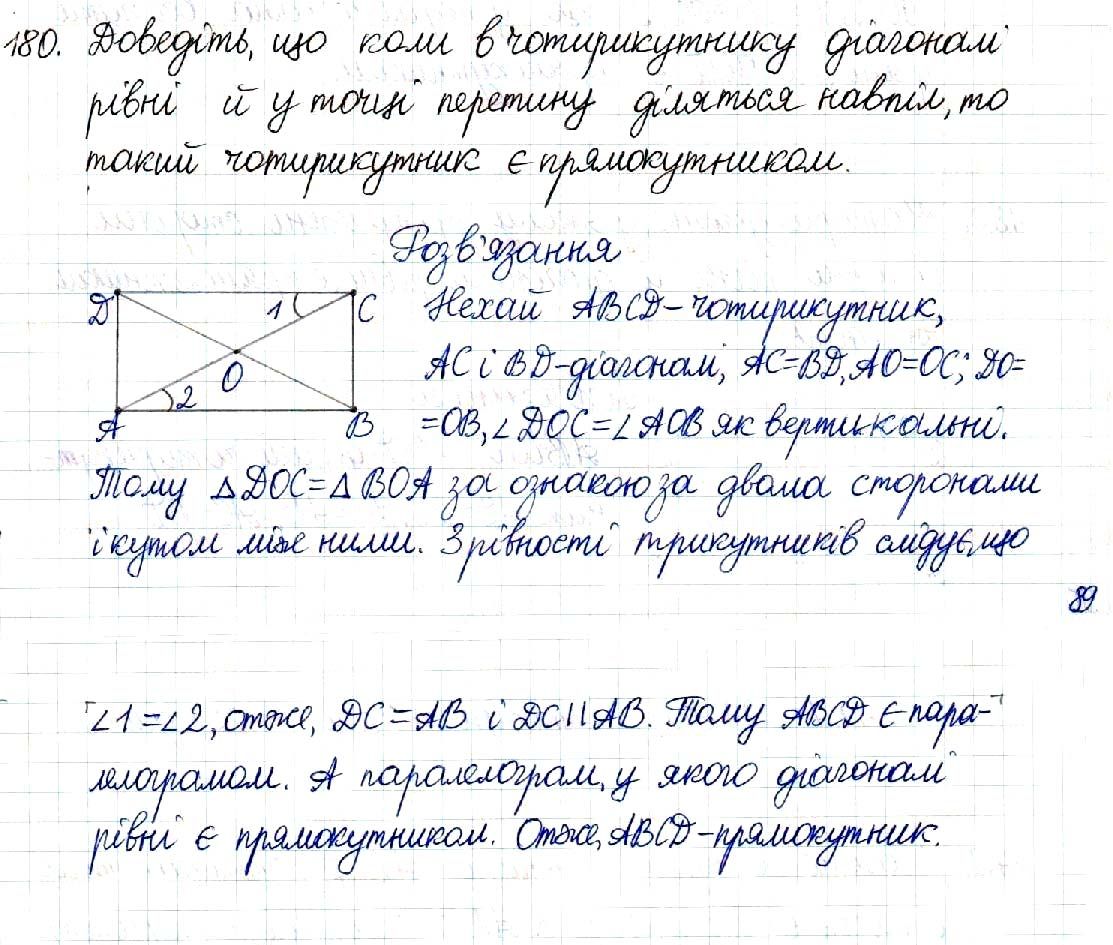 180. Доведіть, що коли в чотирикутнику діагоналі
рівні й у точці перетину діляться навпіл, то
такий чотирикутник є прямокутником.
Розв'язання
D 1 C
O
2
A B
Нехай ABCD-чотирикутник,
AC і BD-діагоналі, AC=BD, AO=OC; DO=
=OB, ∠DOC=∠AOB як вертикальні.
Тому △DOC=△BOA за ознакою за двома сторонами
і кутом між ними. З рівності трикутників слідує, що
89
∠1=∠2, отже, DC=AB і DC||AB. Тому ABCD є пара-
лелограмом. А паралелограм, у якого діагоналі
рівні є прямокутником. Отже, ABCD-прямокутник.